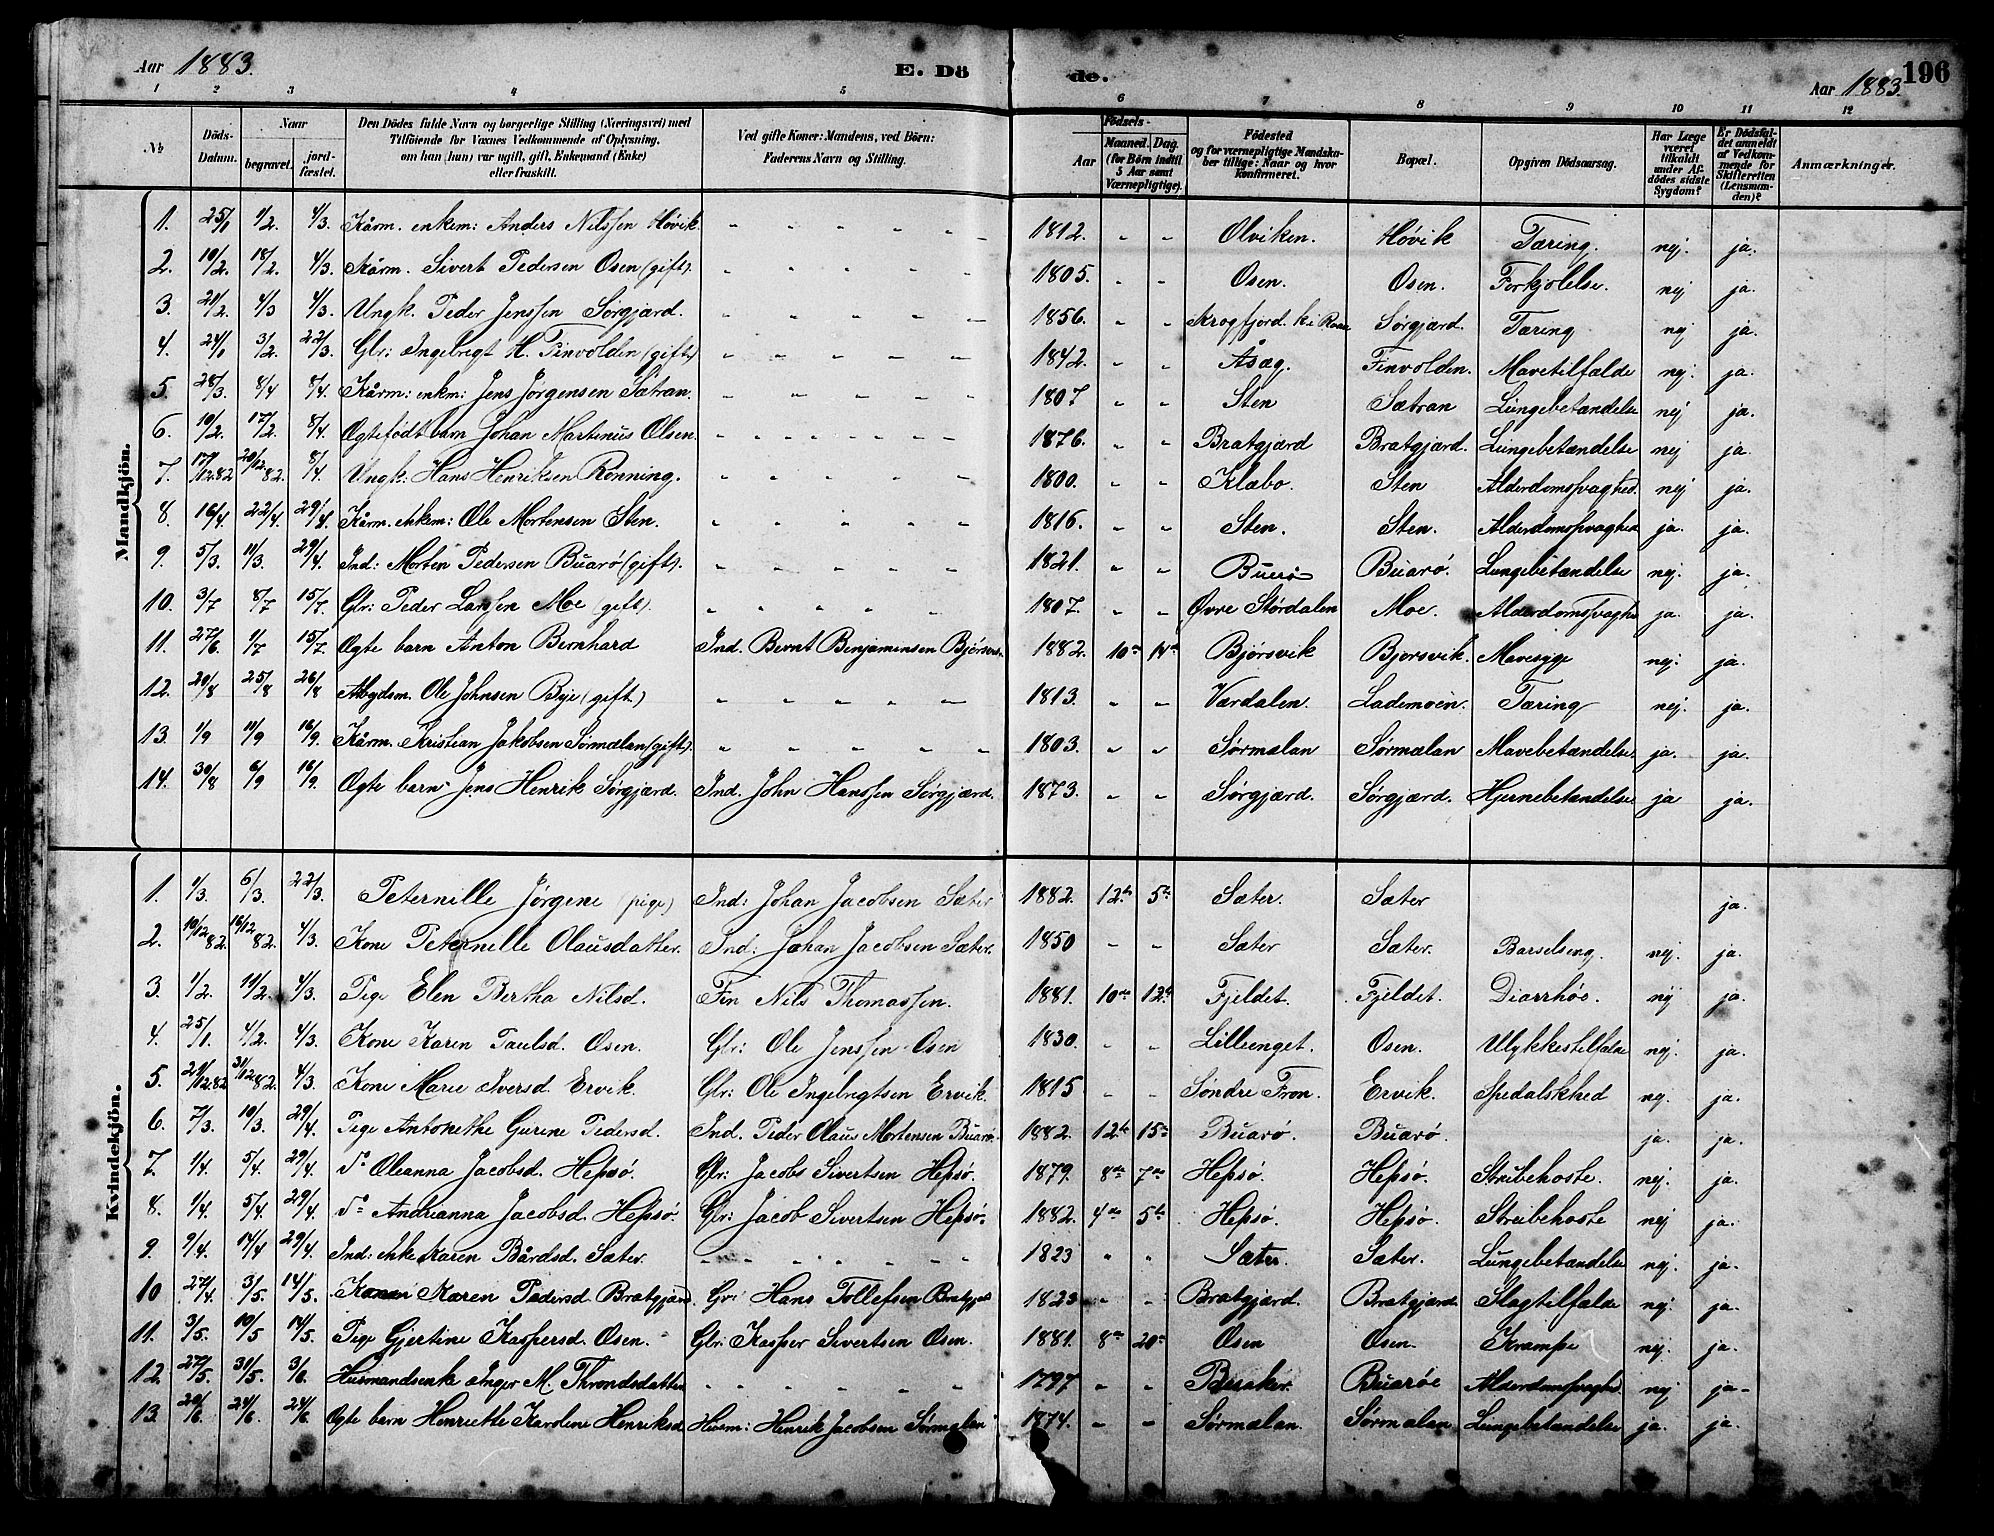 Aar 1883.
E. Dö de.
196
Aar 1883.
1 2 3 4 5 6 7 8 9 10 11 12
No
Döds-Datum.
Naar
begravet.
jord-fæstet.
Den Dödes fulde Navn og borgerlige Stilling (Næringsvei) med Tilföiende for Voxnes Vedkommende af Oplysning, om han (hun) var ugift, gift, Enkemand (Enke) eller fraskilt.
Ved gifte Koner: Mandens, ved Börn: Faderens Navn og Stilling.
Födsels-
Aar
Maaned. Dag.
(for Börn indtil 5 Aar samt Værnepligtige).
Födested og for værnepligtige Mandskaber tillige: Naar og hvor Konfirmeret.
Bopæl.
Opgiven Dödsaarsag.
Har Læge været tilkaldt under Afdödes sidste Sygdom?
Er Dödsfaldet anmeldt af Vedkommende for Skifteretten (Lensmanden)?
Anmærkninger.
Mandkjön.
1. 25/1 1/2 4/3 Kårm. enkem: Anders Nilssen Høvik. 1812. Olviken. Høvik Tæring. nej. ja.
2. 10/2. 18/2. 4/3. Kårm. Sivert Pedersen Osen (gift). 1805. Osen. Osen. Forkjølelse. nej ja.
3. 20/2 4/3 4/3. Ungk. Peder Jenssen Sørgjærd. 1856. Krogfjord. Sørgjærd. Tæring nej ja.
4. 24/1 3/2. 22/3. Glr: Ingebregt H. Finvolden (gift) 1842. Åsæg. Finvolden. Mavetilfælde nej. ja.
5. 28/3 8/4 8/4. Kårm: enkm: Jens Jørgensen Sætran. 1807 Sten Sætran Lungebetændelse nej ja.
6. 10/2. 17/2. 8/4. Ægtefødt barn Johan Martenus Olsen. 1876. Bratgjærd Bratgjærd. Lungebetændelse nej ja.
7. 17/12.82 20/12 82. 8/4 Ungk: Hans Henriksen Rønning. 1800. Klæbo. Sten Alderdomssvaghed. nej ja.
8. 16/4. 22/4. 29/4. Kårm. enkem: Ole Mortensen Sten. 1816. Sten. Sten. Alderdomssvaghed ja. ja.
9. 5/3. 11/3. 29/4. Ind: Morten Pedersen Buarø (gift). 1821. Buarø Buarø. Lungebetændelse nej. ja.
10. 3/7 8/7 15/7. Glr: Peder Larssen Moe (gift). 1807. Øvre Størdalen Moe. Alderdomssvaghed ja. ja.
11. 27/6. 1/7 15/7 Ægte barn Anton Bernhard Ind. Bernt Benjaminsen Bjørsvik. 1882. 10de 14de Bjørsvik Bjørsvik. Mavesyge nej. ja.
12. 20/8 25/8 26/8 Ole Johnsen Bye (gift) 1813. Værdalen. Lademoen. Tæring nej. ja.
13. 1/9 11/9 16/9. Kårm. Kristian Jakobsen Sørmælan (gift). 1803. Sørmælan Sørmælan Mavebetændelse. ja. ja.
14. 30/8 6/9 16/9. Ægte barn Jens Henrik Sørgjærd. Ind. John Hanssen Sørgjærd. 1873. Sørgjærd. Sørgjærd. Hjernebetændelse ja ja.
Kvindekjön.
1. 1/3. 6/3. 22/3. Peternille Jørgine (pige) Ind: Johan Jacobsen Sæter 1882. 12te 5te Sæter. Sæter ja.
2. 10/12 82. 16/12 82. 4/3. Kone Peternille Olausdatter. Ind: Johan Jacobsen Sæter. 1850 Sæter Sæter. Barselseng. nej. ja.
3. 1/2. 10/2. 4/3. Pige Elen Bertha Nilsd. Fin Nils Thomassen. 1881. 10de 12te Fjeldet. Fjeldet. Diarrhøe. nej ja.
4. 25/1. 4/2. 4/3. Kone Karen Paulsd. Osen. Glr: Ole Jenssen Osen 1830. Lillienget. Osen. Ulykkestilfælde nej. ja.
5. 21/12.82 31/12 82. 4/3. Kone Marie Iversd Ervik. Glr: Ole Ingebregtsen Ervik. 1815 Søndre Fron. Ervik. Spedalskhed nej. ja.
6. 7/3. 10/3. 29/4. Pige Antonethe Gurine Pedersd. Ind. Peder Olaus Mortensen Buarø. 1882. 12te 15de Buarø. Buarø. ja. ja.
7. 1/4. 5/4. 29/4. do Oleanna Jacobsd. Hepsø. Glr: Jacob Sivertsen Hepsø. 1879. 8de 7de Hepsø. Hepsø. Strubehoste. nej. ja.
8. 1/4. 5/4 29/4. do Andrianna Jacobsd. Hepsø. Glr: Jacob Sivertsen Hepsø. 1882. 4de 5te Hepsø. Hepsø. Strubehoste nej ja.
9. 9/4. 14/4 29/4. Ind: enke Karen Bårdsd. Sæter. 1823 Sæter. Sæter. Lungebetændelse nej. ja.
10 27/4. 3/5. 14/5. Kone Karen Pedersd. Bratgjærd. Gr: Hans Tollefsen Bratgjærd 1823 Bratgjærd. Bratgjærde Slagtilfælde nej. ja.
11. 3/5. 10/5 14/5. Pige Gjertine Kaspersd. Osen. Glr: Kasper Sivertsen Osen. 1881. 8de 20de Osen Osen. Krampe nej. ja.
12. 27/5. 31/5. 3/6. Husmandsenke Inger M. Throndsdatter 1797 Besaker. Buarøe Alderdomssvaghed nej ja
13. 20/6. 24/6. 24/6. Ægte barn Henriette Karoline Henriksd Husm: Henrik Jacobsen Sørmælan 1874. Sørmælan. Sørmælan Lungebetændelse ja. ja.